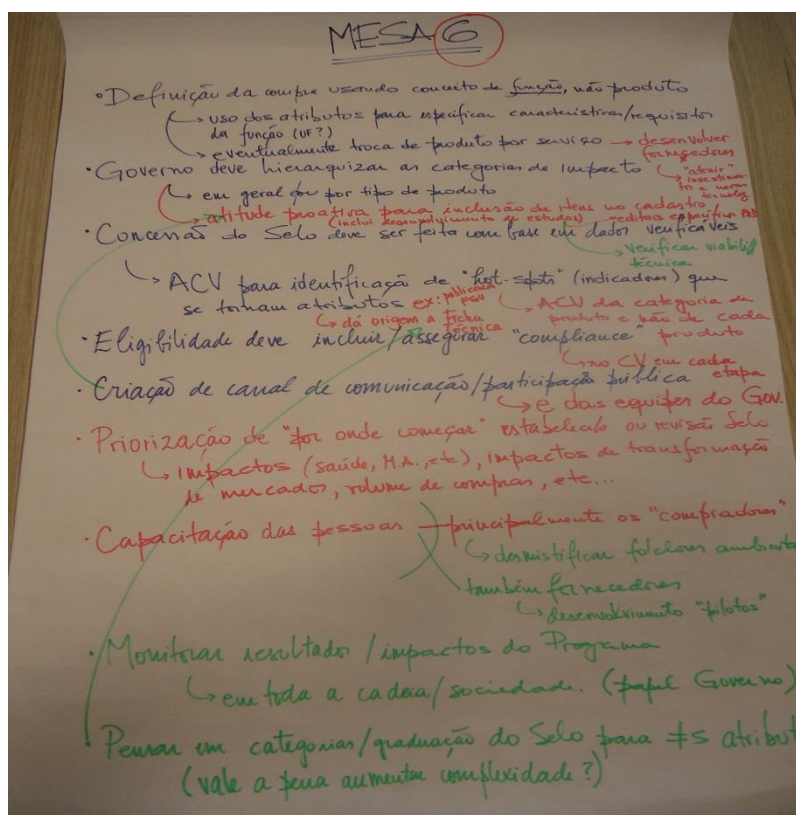 MESA 6
• Definição da compra usando conceito de função, não produto
↳ uso dos atributos para especificar características/requisitos
da função (UF?)
↳ eventualmente troca de produto por serviço → desenvolver
fornecedores
• Governo deve hierarquizar as categorias de impacto
↳ "atrair"
↳ em geral ou por tipo de produto
↳ atitude proativa para inclusão de itens no cadastro
(inclui desenvolvimento de estudos)
• Concessão do Selo deve ser feita com base em dados verificáveis
↳ verificar viabilid/
técnica
↳ ACV para identificação de "hot-spots" (indicadores) que
se tornam atributos ex: publicação
PGV
↳ ACV da categoria de
produto e não de cada
produto
↳ dá origem a Ficha
técnica
• Eligibilidade deve incluir/assegurar "compliance"
↳ no CV em cada
etapa
• Criação de canal de comunicação/participação pública
↳ e das equipes do Gov.
• Priorização de "por onde começar" ou revisão Selo
↳ impactos (saúde, M.A., etc), impactos de transformação
de mercados, volume de compras, etc...
• Capacitação das pessoas → principalmente os "compradores"
↳ desmistificar folclores
também fornecedores
↳ desenvolvimento "pilotos"
• Monitorar resultados/impactos do Programa
↳ em toda a cadeia/sociedade. (papel Governo)
• Pensar em categorias/graduação do Selo para ≠s
(vale a pena aumentar complexidade?)